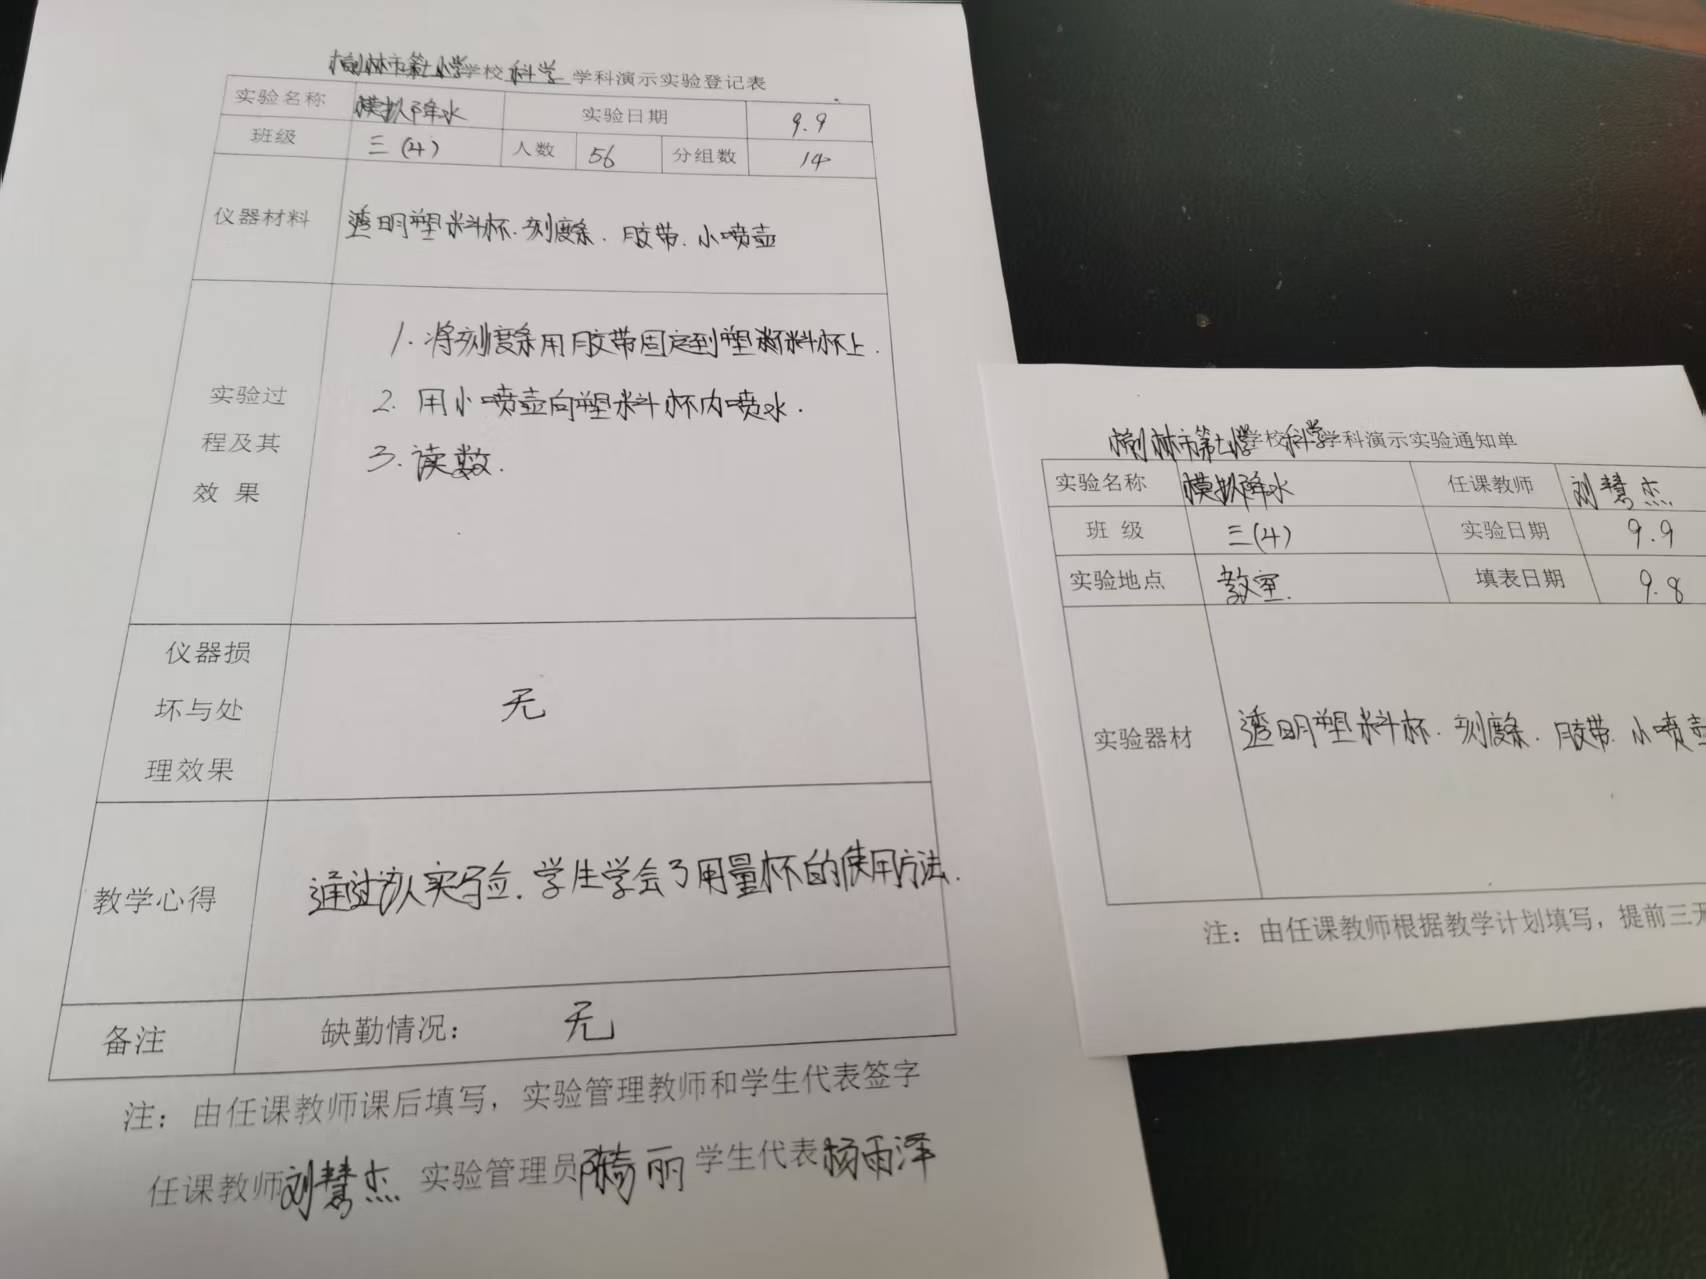 榆林市第七小学学校科学学科演示实验登记表
实验名称 模拟降水 实验日期 9.9
班级 三(4) 人数 56 分组数 14
仪器材料 透明塑料杯.刻度条.胶带.小喷壶
实验过程及其效果
1.将刻度条用胶带固定到塑料杯上.
2.用小喷壶向塑料杯内喷水.
3.读数.
仪器损坏与处理效果 无
教学心得 通过次实验.学生学会了用量杯的使用方法.
备注 缺勤情况： 无
注：由任课教师课后填写，实验管理教师和学生代表签字
任课教师刘慧杰 实验管理员 丽 学生代表杨雨泽
榆林市第七小学学校科学学科演示实验通知单
实验名称 模拟降水 任课教师 刘慧杰
班级 三(4) 实验日期 9.9
实验地点 教室. 填表日期 9.8
实验器材 透明塑料杯.刻度条.胶带.小喷壶
注：由任课教师根据教学计划填写，提前三天